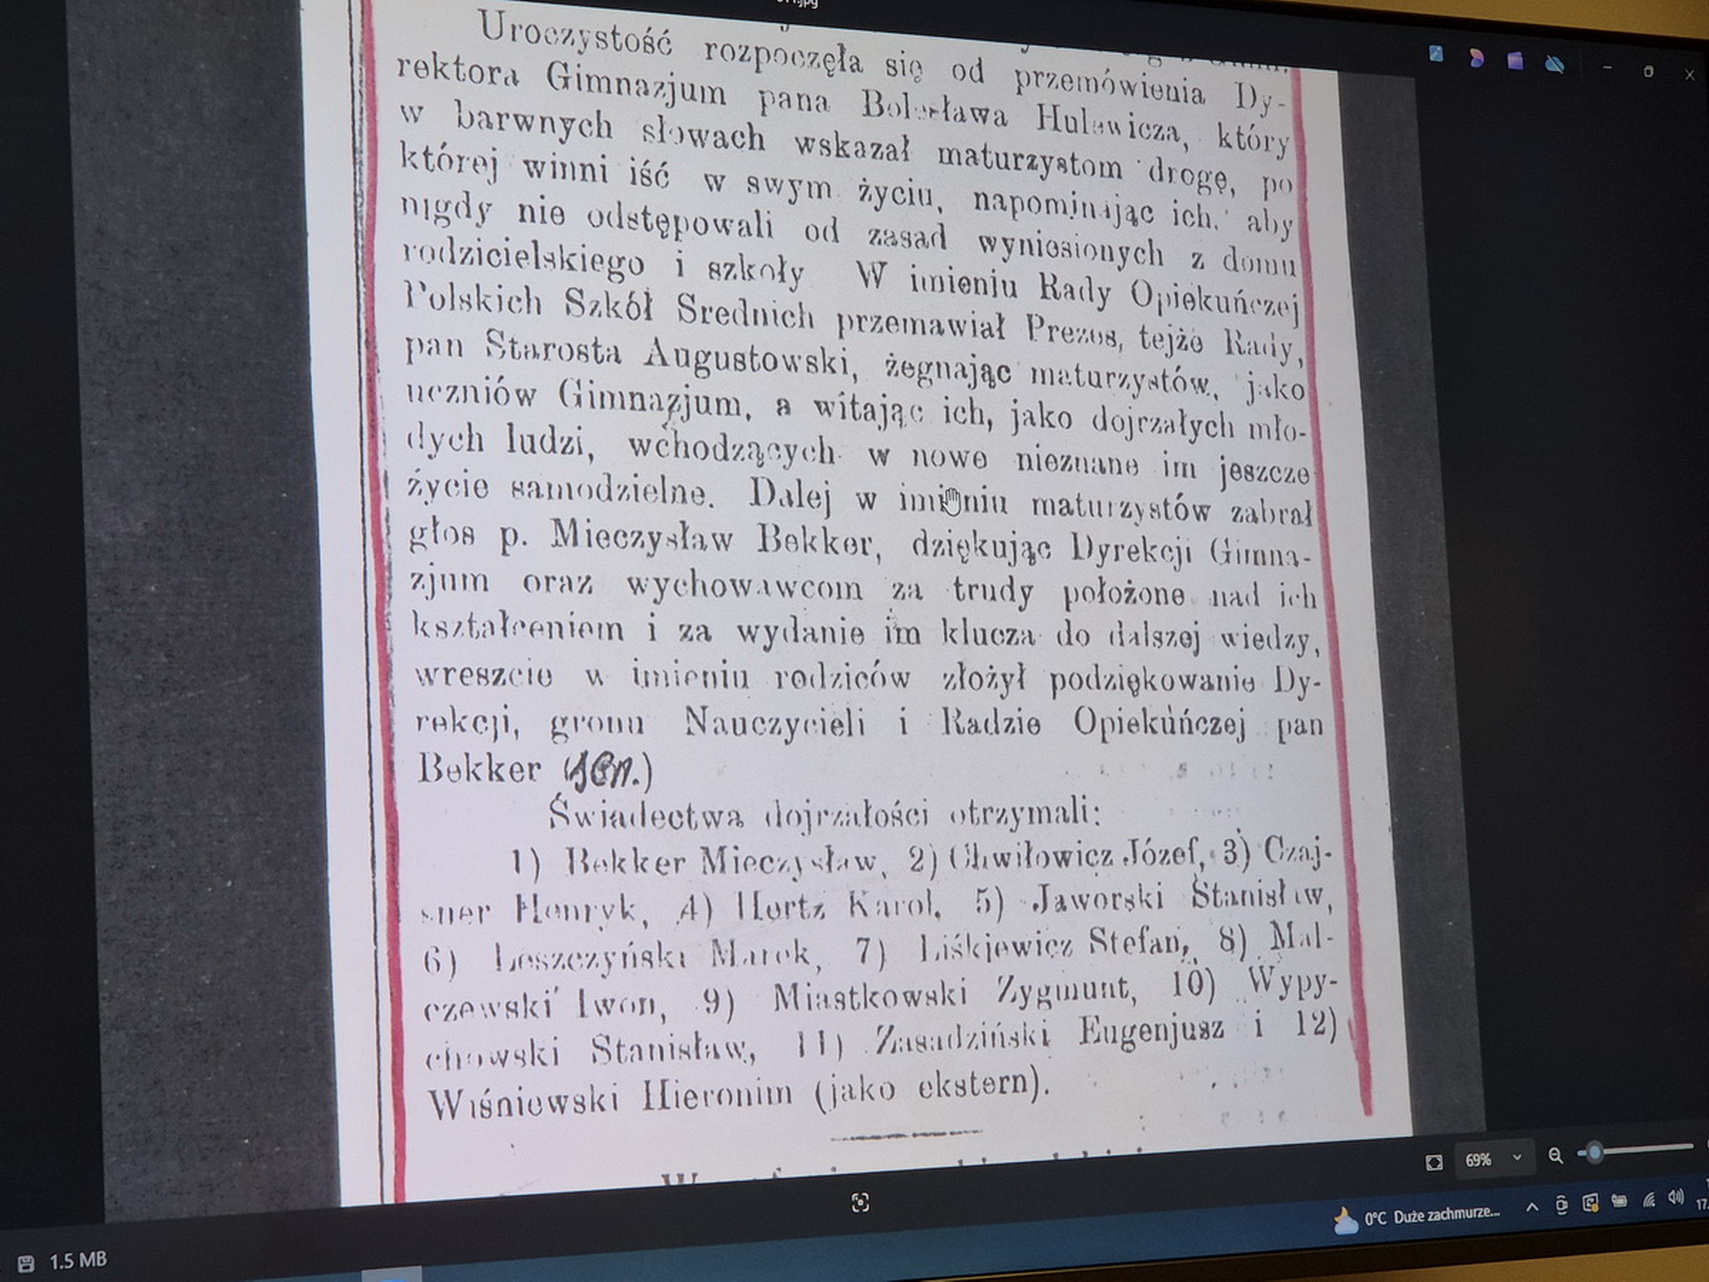 Uroczystość rozpoczęła się od przemówienia Dy-
rektora Gimnazjum pana Bolesława Hulewicza, który
w barwnych słowach wskazał maturzystom drogę, po
której winni iść w swym życiu, napominając ich, aby
nigdy nie odstępowali od zasad wyniesionych z domu
rodzicielskiego i szkoły W imieniu Rady Opiekuńczej
Polskich Szkół Srednich przemawiał Prezes, tejże Rady,
pan Starosta Augustowski, żegnając maturzystów, jako
uczniów Gimnazjum, a witając ich, jako dojrzałych mło-
dych ludzi, wchodzących w nowe nieznane im jeszcze
życie samodzielne. Dalej w imieniu maturzystów zabrał
głos p. Mieczysław Bekker, dziękując Dyrekcji Gimna-
zjum oraz wychowawcom za trudy położone nad ich
kształceniem i za wydanie im klucza do dalszej wiedzy,
wreszcie w imieniu rodziców złożył podziękowanie Dy-
rekcji, gronu Nauczycieli i Radzie Opiekuńczej pan
Bekker (sen.)
Świadectwa dojrzałości otrzymali:
1) Bekker Mieczysław, 2) Chwiłowicz Józef, 3) Czaj-
sner Henryk, 4) Hertz Karol, 5) Jaworski Stanisław,
6) Leszczyński Marek, 7) Liśkjewicz Stefan, 8) Mal-
czewski Iwon, 9) Miastkowski Zygmunt, 10) Wypy-
chowski Stanisław, 11) Zasadziński Eugenjusz i 12)
Wiśniewski Hieronim (jako ekstern).
69%
0°C Duże zachmurze...
17.
1.5 MB